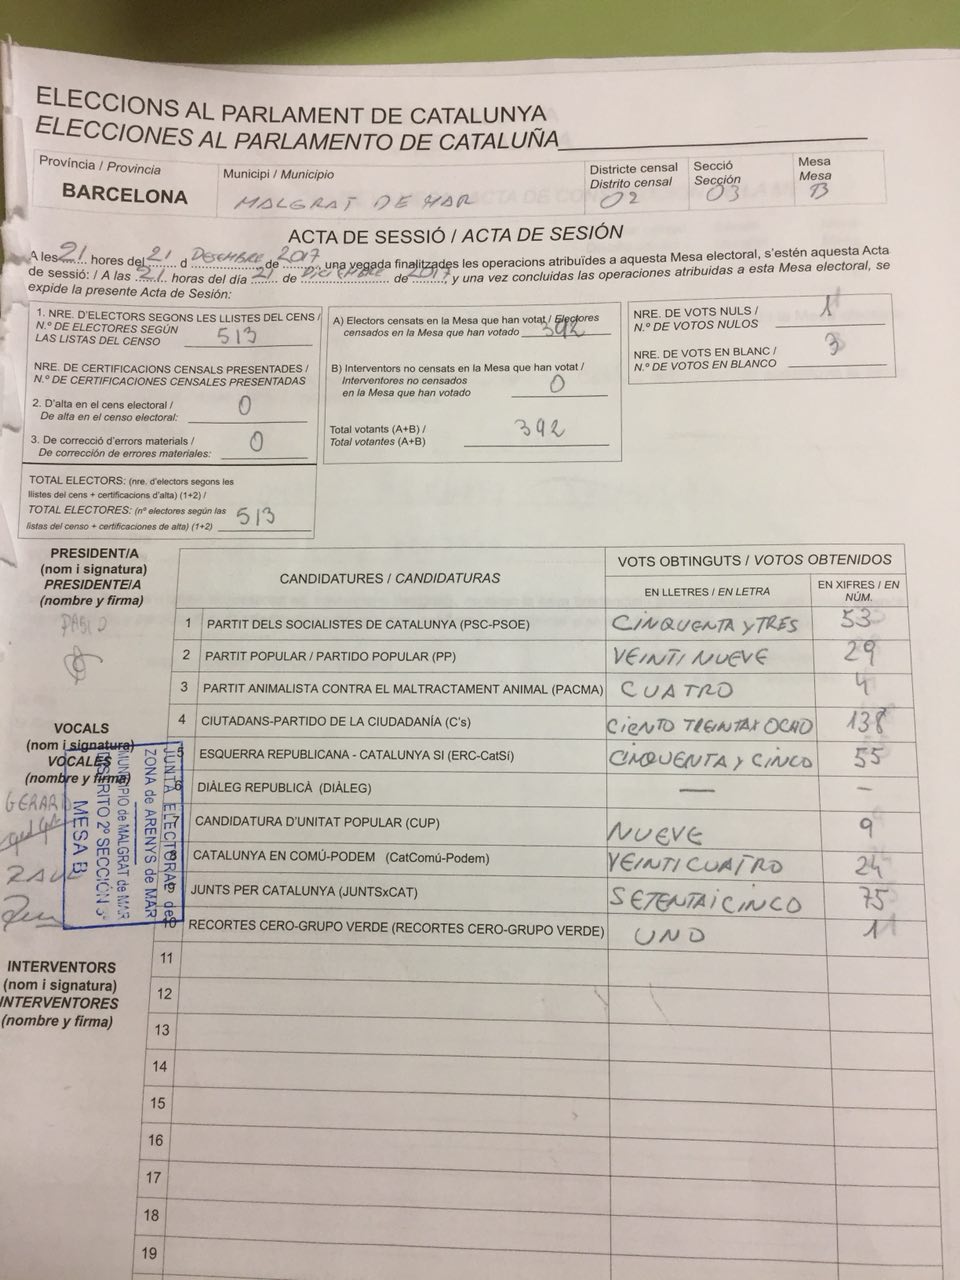 ELECCIONS AL PARLAMENT DE CATALUNYA
ELECCIONES AL PARLAMENTO DE CATALUÑA
Província / Provincia
BARCELONA
Municipi / Municipio
MALGRAT DE MAR
Districte censal
Distrito censal
02
Secció
Sección
03
Mesa
Mesa
B
ACTA DE SESSIÓ / ACTA DE SESIÓN
A les 21 hores del 21 d DESEMBRE de 2017 una vegada finalitzades les operacions atribuïdes a aquesta Mesa electoral, s'estén aquesta Acta
de sessió: / A las 21 horas del día 21 de DICIEMBRE de 2017, y una vez concluidas las operaciones atribuidas a esta Mesa electoral, se
expide la presente Acta de Sesión:
1. NRE. D'ELECTORS SEGONS LES LLISTES DEL CENS /
N.º DE ELECTORES SEGÚN
LAS LISTAS DEL CENSO 513
NRE. DE CERTIFICACIONS CENSALS PRESENTADES /
N.º DE CERTIFICACIONES CENSALES PRESENTADAS
2. D'alta en el cens electoral /
De alta en el censo electoral: 0
3. De correcció d'errors materials /
De corrección de errores materiales: 0
TOTAL ELECTORS: (nre. d'electors segons les
llistes del cens + certificacions d'alta) (1+2) /
TOTAL ELECTORES: (nº electores según las
listas del censo + certificaciones de alta) (1+2) 513
A) Electors censats en la Mesa que han votat / Electores
censados en la Mesa que han votado 392
B) Interventors no censats en la Mesa que han votat /
Interventores no censados
en la Mesa que han votado 0
Total votants (A+B) /
Total votantes (A+B) 392
NRE. DE VOTS NULS /
N.º DE VOTOS NULOS 1
NRE. DE VOTS EN BLANC /
N.º DE VOTOS EN BLANCO 3
PRESIDENT/A
(nom i signatura)
PRESIDENTE/A
(nombre y firma)
PABLO
VOCALS
(nom i signatura)
VOCALES
(nombre y firma)
GERARD
JUNTA ELECTORAL de
ZONA de ARENYS de MAR
MUNICIPIO de MALGRAT de MAR
DISTRITO 2º SECCION 3ª
MESA B
INTERVENTORS
(nom i signatura)
INTERVENTORES
(nombre y firma)
CANDIDATURES / CANDIDATURAS
VOTS OBTINGUTS / VOTOS OBTENIDOS
EN LLETRES / EN LETRA
EN XIFRES / EN
NÚM.
1 PARTIT DELS SOCIALISTES DE CATALUNYA (PSC-PSOE) CINQUENTA Y TRES 53
2 PARTIT POPULAR / PARTIDO POPULAR (PP) VEINTI NUEVE 29
3 PARTIT ANIMALISTA CONTRA EL MALTRACTAMENT ANIMAL (PACMA) CUATRO 4
4 CIUTADANS-PARTIDO DE LA CIUDADANÍA (C's) CIENTO TREINTA Y OCHO 138
5 ESQUERRA REPUBLICANA - CATALUNYA SI (ERC-CatSí) CINQUENTA Y CINCO 55
6 DIÀLEG REPUBLICÀ (DIÀLEG) — –
7 CANDIDATURA D'UNITAT POPULAR (CUP) NUEVE 9
8 CATALUNYA EN COMÚ-PODEM (CatComú-Podem) VEINTICUATRO 24
9 JUNTS PER CATALUNYA (JUNTSxCAT) SETENTA I CINCO 75
10 RECORTES CERO-GRUPO VERDE (RECORTES CERO-GRUPO VERDE) UNO 1
11
12
13
14
15
16
17
18
19